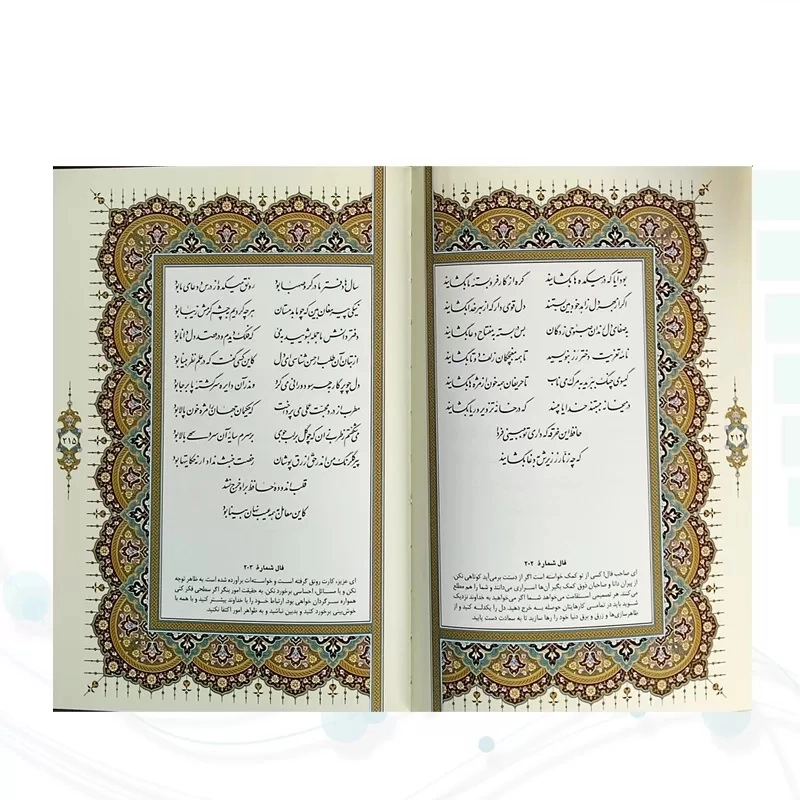 بود آیا که در میکده‌ها بگشایند گره از کار فروبسته ما بگشایند
اگر از بهر دل زاهد خودبین بستند دل قوی دار که از بهر خدا بگشایند
به صفای دل رندان صبوحی زدگان بس در بسته به مفتاح دعا بگشایند
نامه تعزیت دختر رز بنویسید تا همه مغبچگان زلف دوتا بگشایند
گیسوی چنگ ببرید به مرگ می ناب تا حریفان همه خون از مژه‌ها بگشایند
در میخانه ببستند خدایا مپسند که در خانه تزویر و ریا بگشایند
حافظ این خرقه که داری تو ببینی فردا
که چه زنار ز زیرش به دغا بگشایند
فال شمارهٔ ۲۰۲
ای صاحب فال! کسی از تو کمک خواسته است اگر از دستت برمی‌آید کوتاهی نکن.
از پیران دانا و صاحبان ذوق کمک بگیر آن‌ها اسراری می‌دانند و شما را هم مطلع
می‌کنند. هر تصمیمی استقامت می‌خواهد شما اگر می‌خواهید به خداوند نزدیک
شوید باید در تمامی کارهایتان حوصله به خرج دهید. دل را یکدله کنید و از
ظاهرسازی‌ها و زرق و برق دنیا خود را رها سازید تا به سعادت دست یابید.
۲۱۴
سال‌ها دفتر ما در گرو صهبا بود رونق میکده از درس و دعای ما بود
نیکی پیر مغان بین که چو ما بدمستان هر چه کردیم به چشم کرمش زیبا بود
دفتر دانش ما جمله بشویید به می که فلک دیدم و در قصد دل دانا بود
از بتان آن طلب ار حسن شناسی ای دل کاین کسی گفت که در علم نظر بینا بود
دل چو پرگار به هر سو دورانی می‌کرد و اندر آن دایره سرگشته پابرجا بود
مطرب از درد محبت عملی می‌پرداخت که حکیمان جهان را مژه خون پالا بود
می‌شکفتم ز طرب زان که چو گل بر لب جوی بر سرم سایه آن سرو سهی بالا بود
پیر گلرنگ من اندر حق ازرق پوشان رخصت خبث نداد ار نه حکایت‌ها بود
قلب اندوده حافظ بر او خرج نشد
کاین معامل به همه عیب نهان بینا بود
فال شمارهٔ ۲۰۳
ای عزیز، کارت رونق گرفته است و خواسته‌ات برآورده شده است. به ظاهر توجه
نکن و با مسائل، احساسی برخورد نکن. به حقیقت امور بنگر اگر سطحی فکر کنی
همواره سرگردان خواهی بود. ارتباط خود را با خداوند بیشتر کنید و با همه با
خوش‌بینی برخورد کنید و بدبین نباشید و به ظواهر امور اکتفا نکنید.
۲۱۵